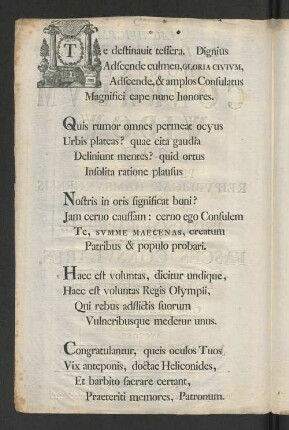 Te destinauit tessera. Dignius
Adscende culmen, GLORIA CIVIVM,
Adscende, & amplos Consulatus
Magnifici cape nunc honores.
Quis rumor omnes permeat ocyus
Urbis plateas? quae cita gaudia
Deliniunt mentes? quid ortus
Insolita ratione plausus
Nostris in oris significat boni?
Jam cerno caussam: cerno ego Consulem
Te, SVMME MAECENAS, creatum
Patribus & populo probari.
Haec est voluntas, dicitur undique,
Haec est voluntas Regis Olympii,
Qui rebus adflictis suorum
Vulneribusque medetur unus.
Congratulantur, queis oculos Tuos
Vix anteponis, doctae Heliconides,
Et barbito sacrare certant,
Praeteriti memores, Patronum.